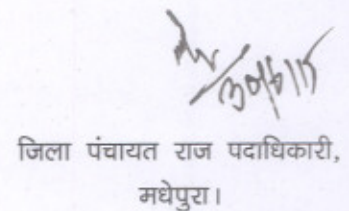 जिला पंचायत राज पदाधिकारी,
मधेपुरा।